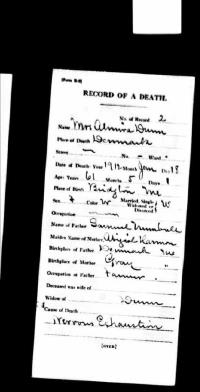 (Form B-8)
RECORD OF A DEATH.
No. of Record 2
Name Mrs Almira Dunn
Place of Death Denmark
Street — No. — Ward "
Date of Death—Year 1912 Month Jan Day 18
Age: Years 61 Months 5 Days 1
Place of Birth Bridgton Me
Sex F Color W Married, Single, Widowed or Divorced W
Occupation
Name of Father Samuel
Maiden Name of Mother Abigail
Birthplace of Father Denmark Me
Birthplace of Mother Gray "
Occupation of Father Farmer
Deceased was wife of
Widow of Dunn
Cause of Death
Nervous Exhaustion
[OVER]